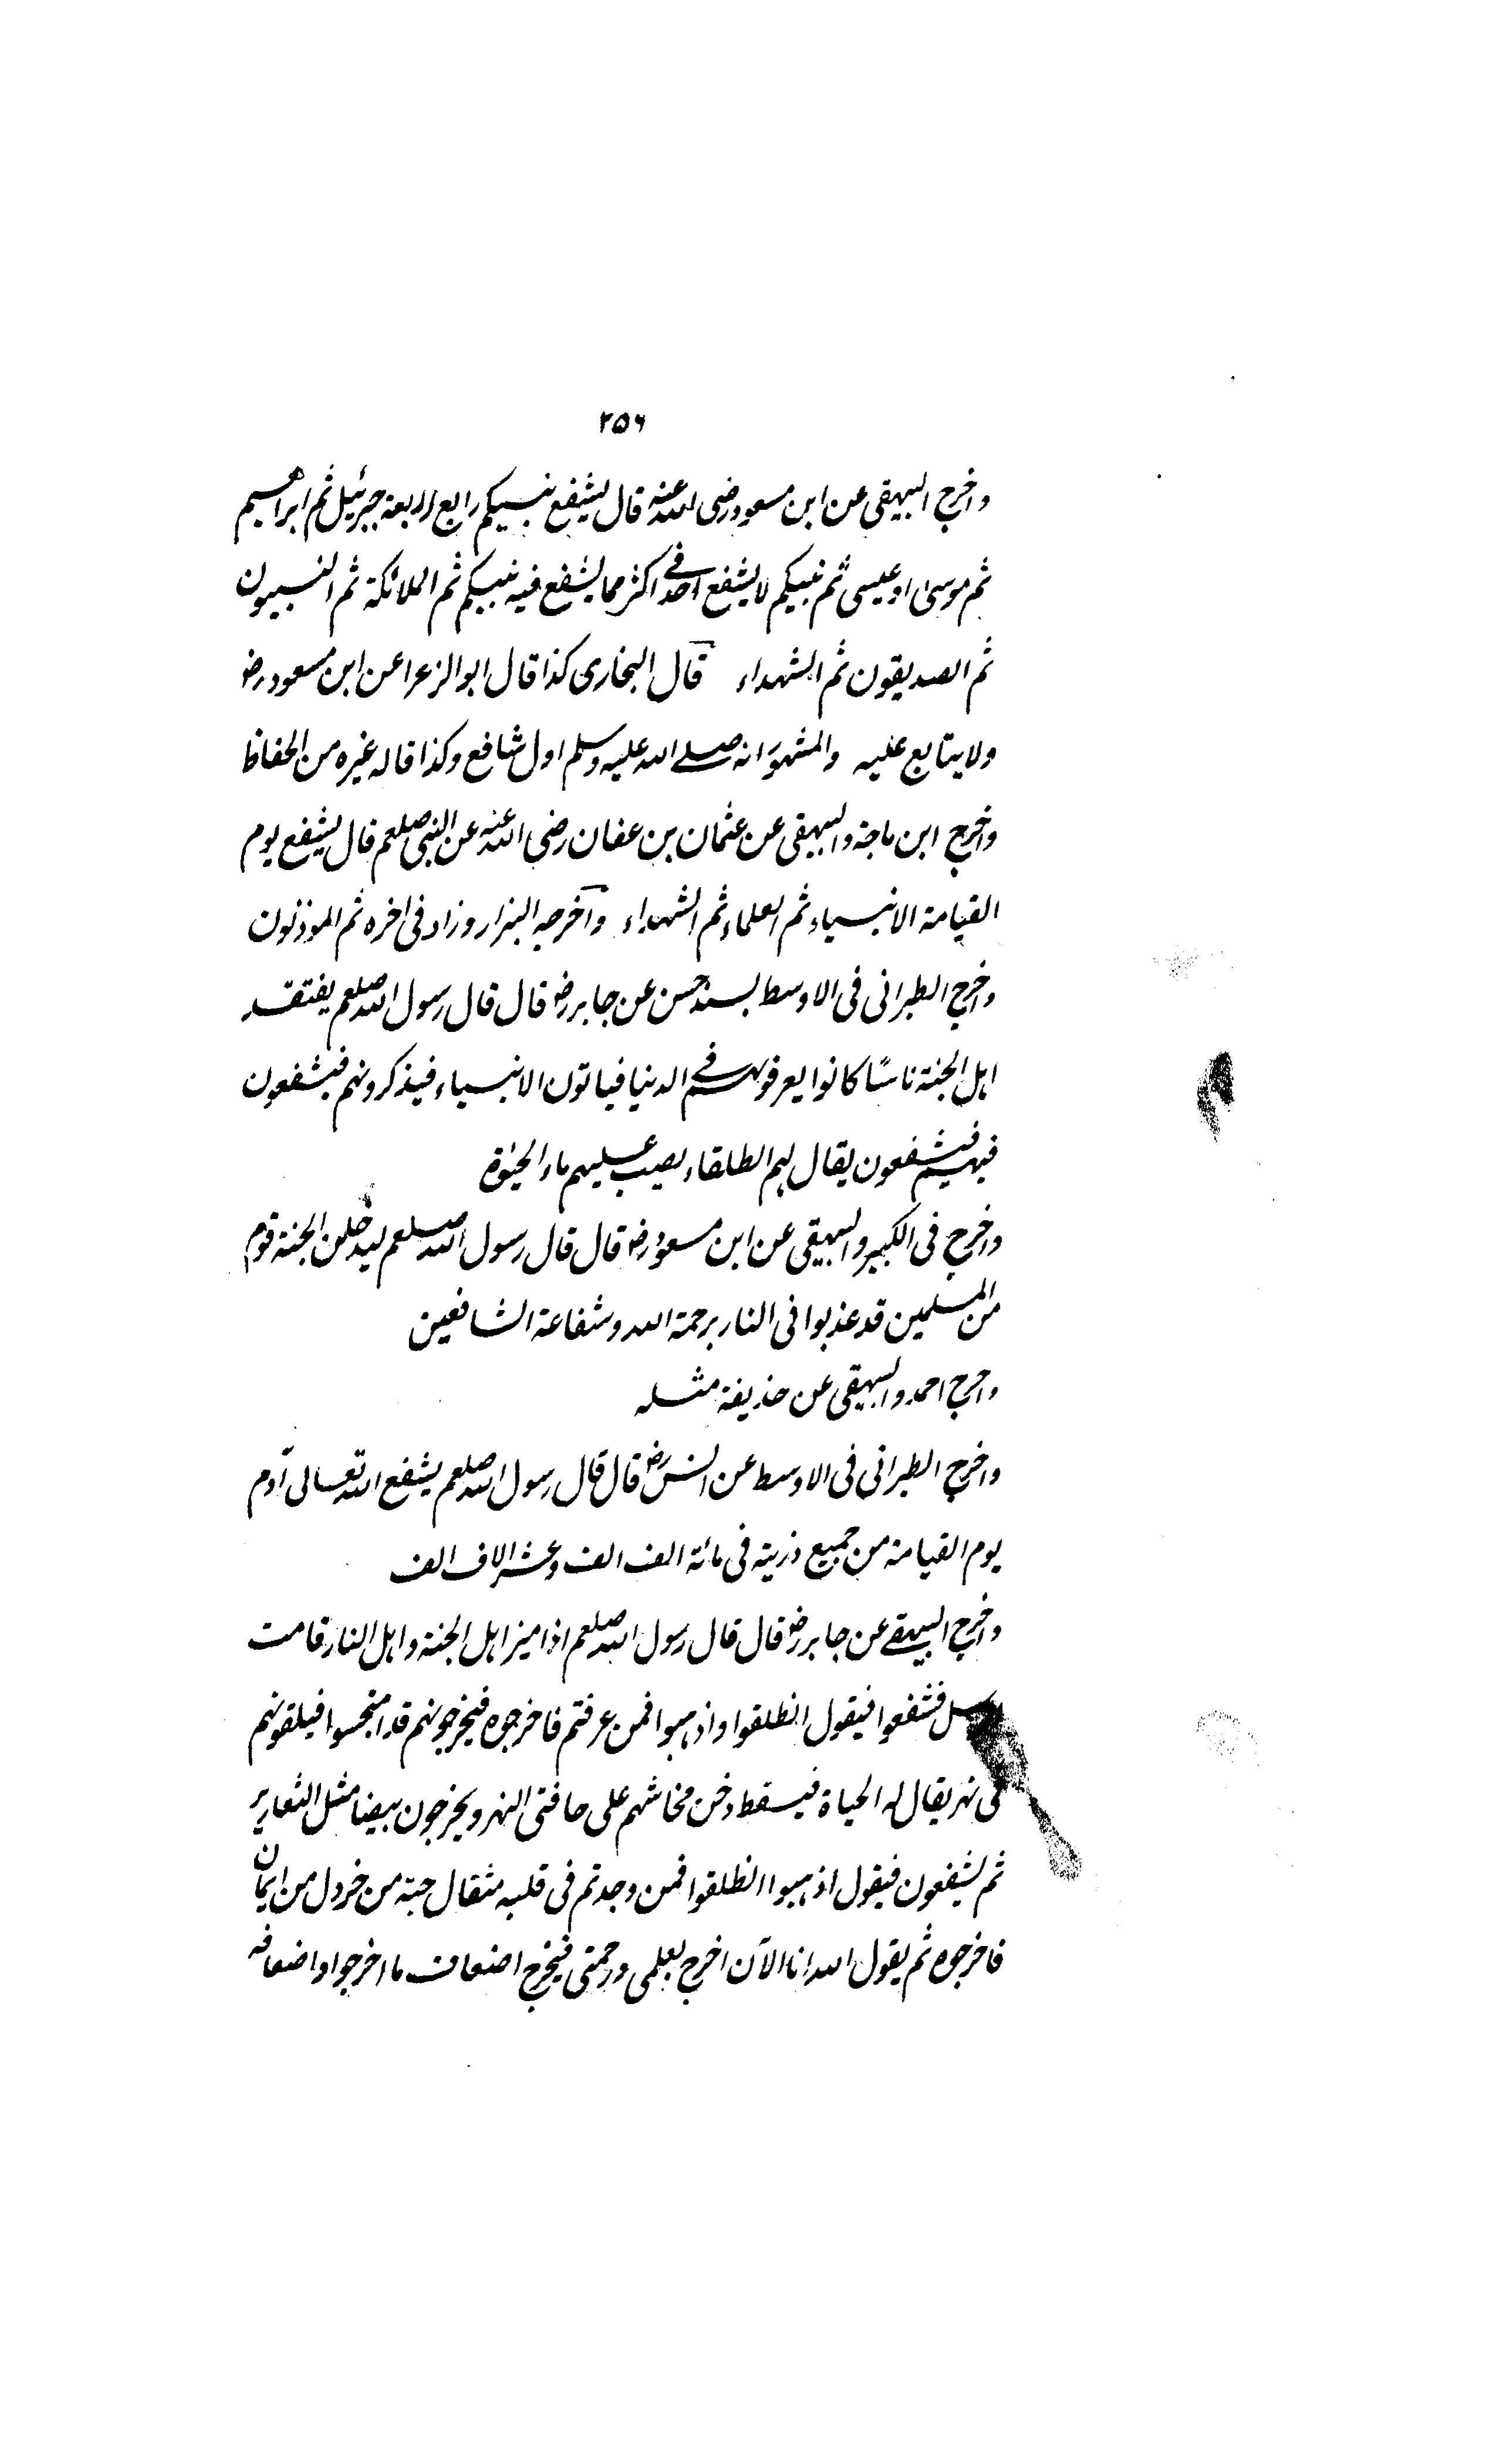 ۲۵۶
واخرج البيهقى عن ابن مسعود رضى الله عنه قال يشفع نبيكم رابع اربعة جبرئيل ثم ابراهيم
ثم موسىٰ او عيسى ثم نبيكم لا يشفع احد فى اكثر مما يشفع فيه نبيكم ثم الملائكة ثم النبيون
ثم الصديقون ثم الشهداء قال البخارى كذا قال ابو الزعرا عن ابن مسعود رضـ
ولا يتابع عليه والمشهور انه صلے الله عليه وسلم اول شافع وكذا قاله غيره من الحفاظ
واخرج ابن ماجة والبيهقى عن عثمان بن عفان رضى الله عنه عن النبى صلعم قال يشفع يوم
القيامة الانبياء ثم العلماء ثم الشهداء وآخرجه البزار وزاد فى اخره ثم الموذنون
واخرج الطبرانى فى الاوسط بسند حسن عن جابر رضـ قال قال رسول الله صلعم يفتقد
اہل الجنة ناسًا كانوا يعرفونهم فے الدنيا فياتون الانبياء فيذكرونهم فيشفعون
فيهم فيشفعون يقال لہم الطلقاء يصب عليهم ماء الحيٰوة
واخرج فى الكبير والبيهقى عن ابن مسعود رضـ قال قال رسول الله صلعم ليدخلن الجنة قوم
من المسلمين قد عذبوا فى النار برحمة الله وشفاعة الشافعين
واخرج احمد والبيهقى عن حذيفة مثله
واخرج الطبرانى فى الاوسط عن انس رضـ قال قال رسول الله صلعم يشفع الله تعالى آدم
يوم القيامة من جميع ذريته فى مائة الف الف وعشر الاف الف
واخرج البيهقے عن جابر رضـ قال قال رسول الله صلعم اذا ميز اہل الجنة واہل النار قامت
الرسل فشفعوا فيقول انطلقوا واذہبوا فمن عرفتم فاخرجوه فيخرجونهم قد امتحسوا فيلقونهم
فى نهر يقال له الحياة فيسقط دخن مخاشهم على حافتى النهر ويخرجون بيضا مثل الثعارير
ثم يشفعون فيقول اذہبوا انطلقوا فمن وجدتم فى قلبه مثقال حبة من خردل من ايمان
فاخرجوه ثم يقول الله انا الآن اخرج بعلمى ورحمتى فيخرج اضعاف ما اخرجوا واضعافه